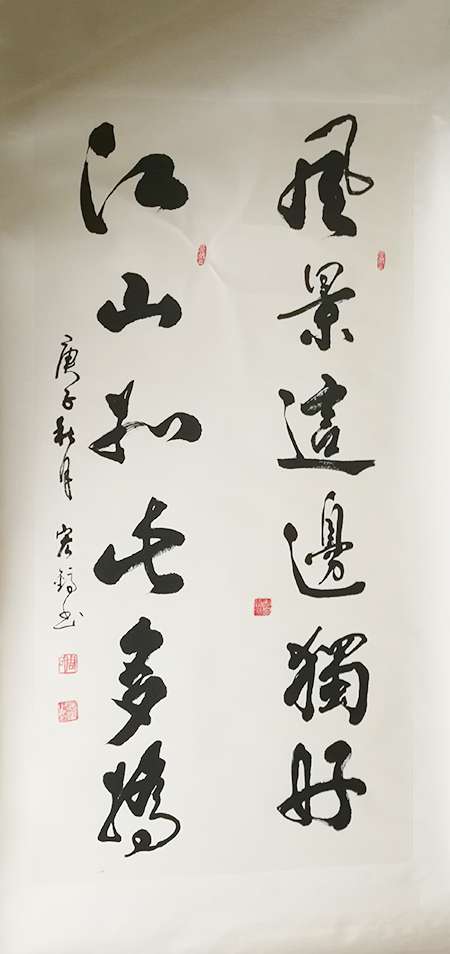 風景這邊獨好
江山如此多嬌
庚子秋月 书